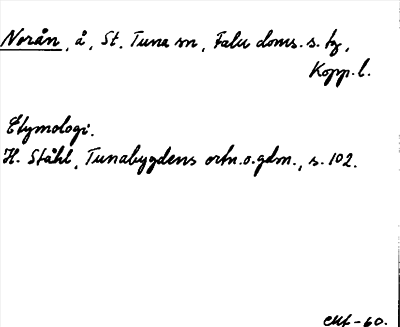 Norån, å, St. Tuna sn, Falu doms. s. tg,
Kopp. l.
Etymologi.
H. Ståhl, Tunabygdens ortn. o. gdm., s. 102.
-60.